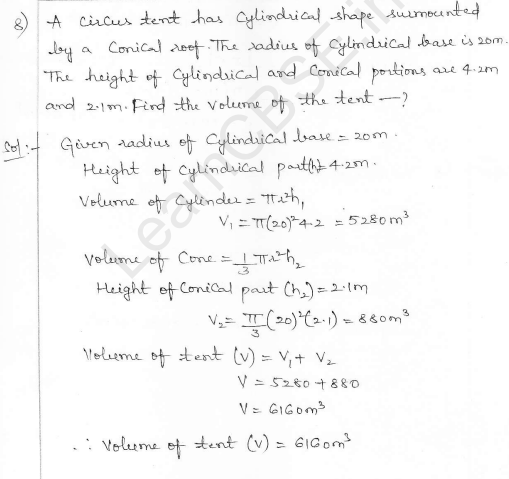 8) A circus tent has cylindrical shape surmounted
by a conical roof. The radius of cylindrical base is 20m.
The height of cylindrical and conical portions are 4.2m
and 2.1m. Find the volume of the tent —?
Sol:- Given radius of cylindrical base = 20m.
Height of cylindrical part(h)= 4.2m.
Volume of cylinder = πr²h₁
V₁ = π(20)²4.2 = 5280m³
Volume of cone = 1/3 πr²h₂
Height of conical part (h₂) = 2.1m
V₂ = π/3 (20)²(2.1) = 880m³
Volume of tent (V) = V₁ + V₂
V = 5280 + 880
V = 6160m³
∴ Volume of tent (V) = 6160m³
LearnCBSE.in